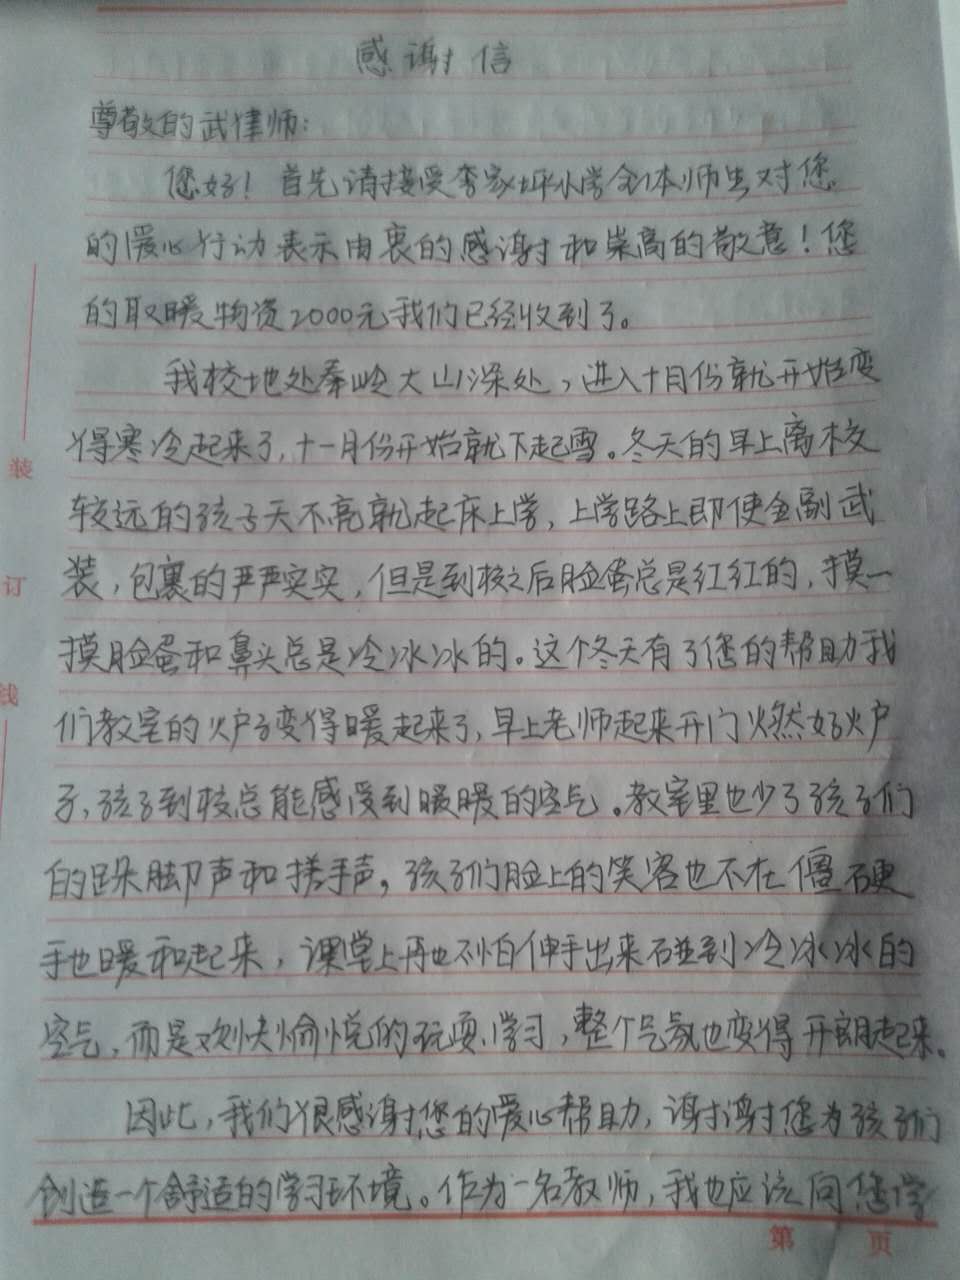 感谢信
尊敬的武律师：
您好！首先请接受李家坪小学全体师生对您
的爱心行动表示由衷的感谢和崇高的敬意！您
的取暖物资2000元我们已经收到了。
我校地处秦岭大山深处，进入十月份就开始变
得寒冷起来了，十一月份开始就下起雪。冬天的早上离校
较远的孩子天不亮就起床上学，上学路上即使全副武
装，包裹的严严实实，但是到校之后脸蛋总是红红的，摸一
摸脸蛋和鼻头总是冷冰冰的。这个冬天有了您的帮助我
们教室的炉子变得暖起来了，早上老师起来开门燃好炉
子，孩子到校总能感受到暖暖的空气。教室里也少了孩子们
的跺脚声和搓手声，孩子们脸上的笑容也不在僵硬
手也暖和起来，课堂上再也不怕伸手出来碰到冷冰冰的
空气，而是欢快愉悦的玩耍、学习，整个气氛也变得开朗起来。
因此，我们很感谢您的爱心帮助，谢谢您为孩子们
创造一个舒适的学习环境。作为一名教师，我也应该向您学
装
订
线
第 页